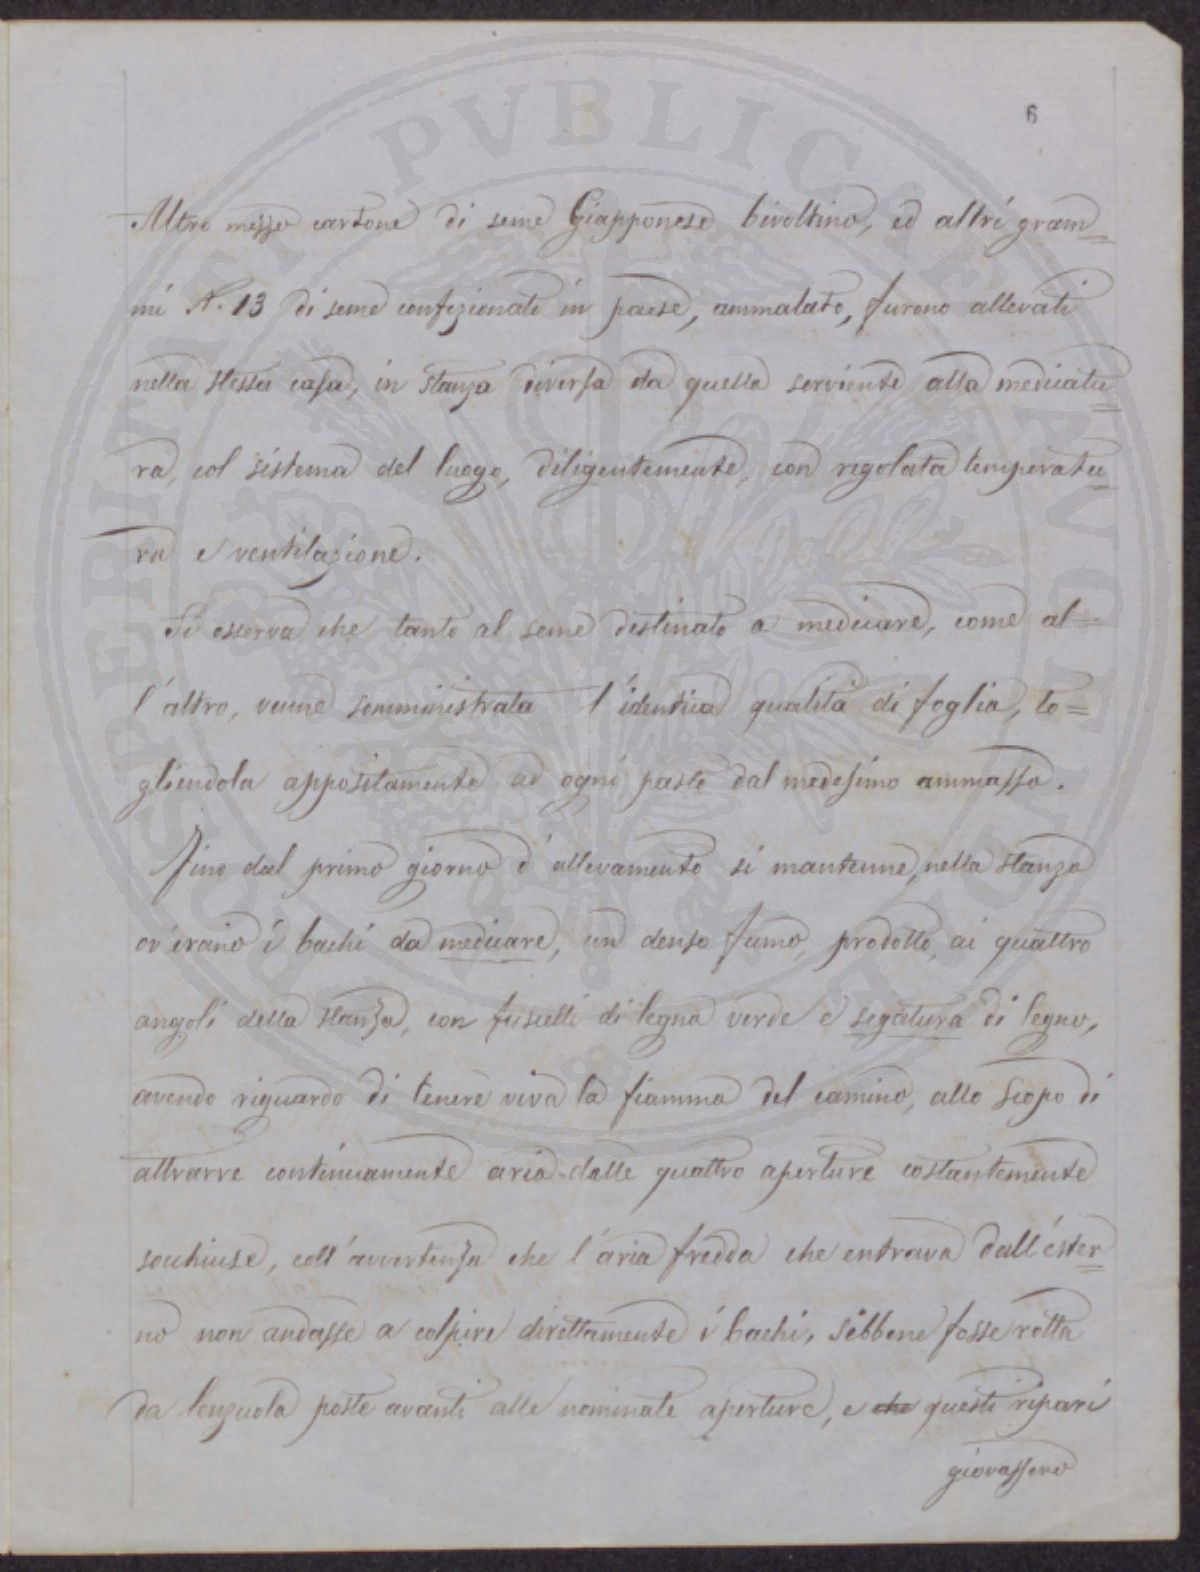 6
Altro mezzo cartone di seme Giapponese bivoltino, ed altri gram=
mi N. 13 di seme confezionato in paese, ammalato, furono allevati
nella stessa casa, in stanza diversa da quella serviente alla medicatu
ra, col sistema del luogo, diligentemente, con regolata temperatu
ra e ventilazione.
Si osserva che tanto al seme destinato a medicare, come al=
l'altro, venne somministrata l'identica qualità di foglia, to=
gliendola appositamente ad ogni pasto dal medesimo ammasso.
Fino dal primo giorno d'allevamento si mantenne, nella stanza
ov'erano i bachi da medicare, un denso fumo, prodotto, ai quattro
angoli della stanza, con fuscelli di legna verde e segatura di legno,
avendo riguardo di tenere viva la fiamma del camino, allo scopo di
attrarre continuamente aria dalle quattro aperture costantemente
socchiuse, coll'avvertenza che l'aria fredda che entrava dall'ester
no non andasse a colpire direttamente i bachi, sebbene fosse rotta
da lenzuola poste avanti alle nominate aperture, e che questi ripari
giovassero
PVBLICVE